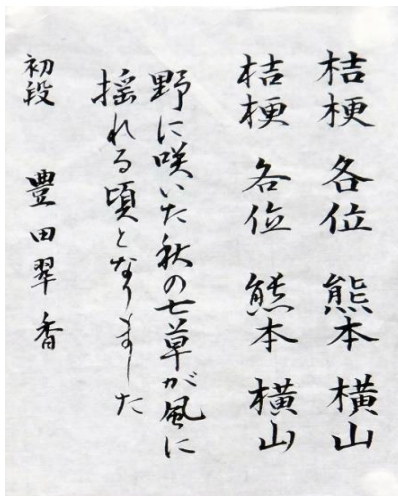 桔梗 各位 熊本 横山
桔梗 各位 熊本 横山
野に咲いた秋の七草が風に
揺れる頃となりました
初段 豊田翠香